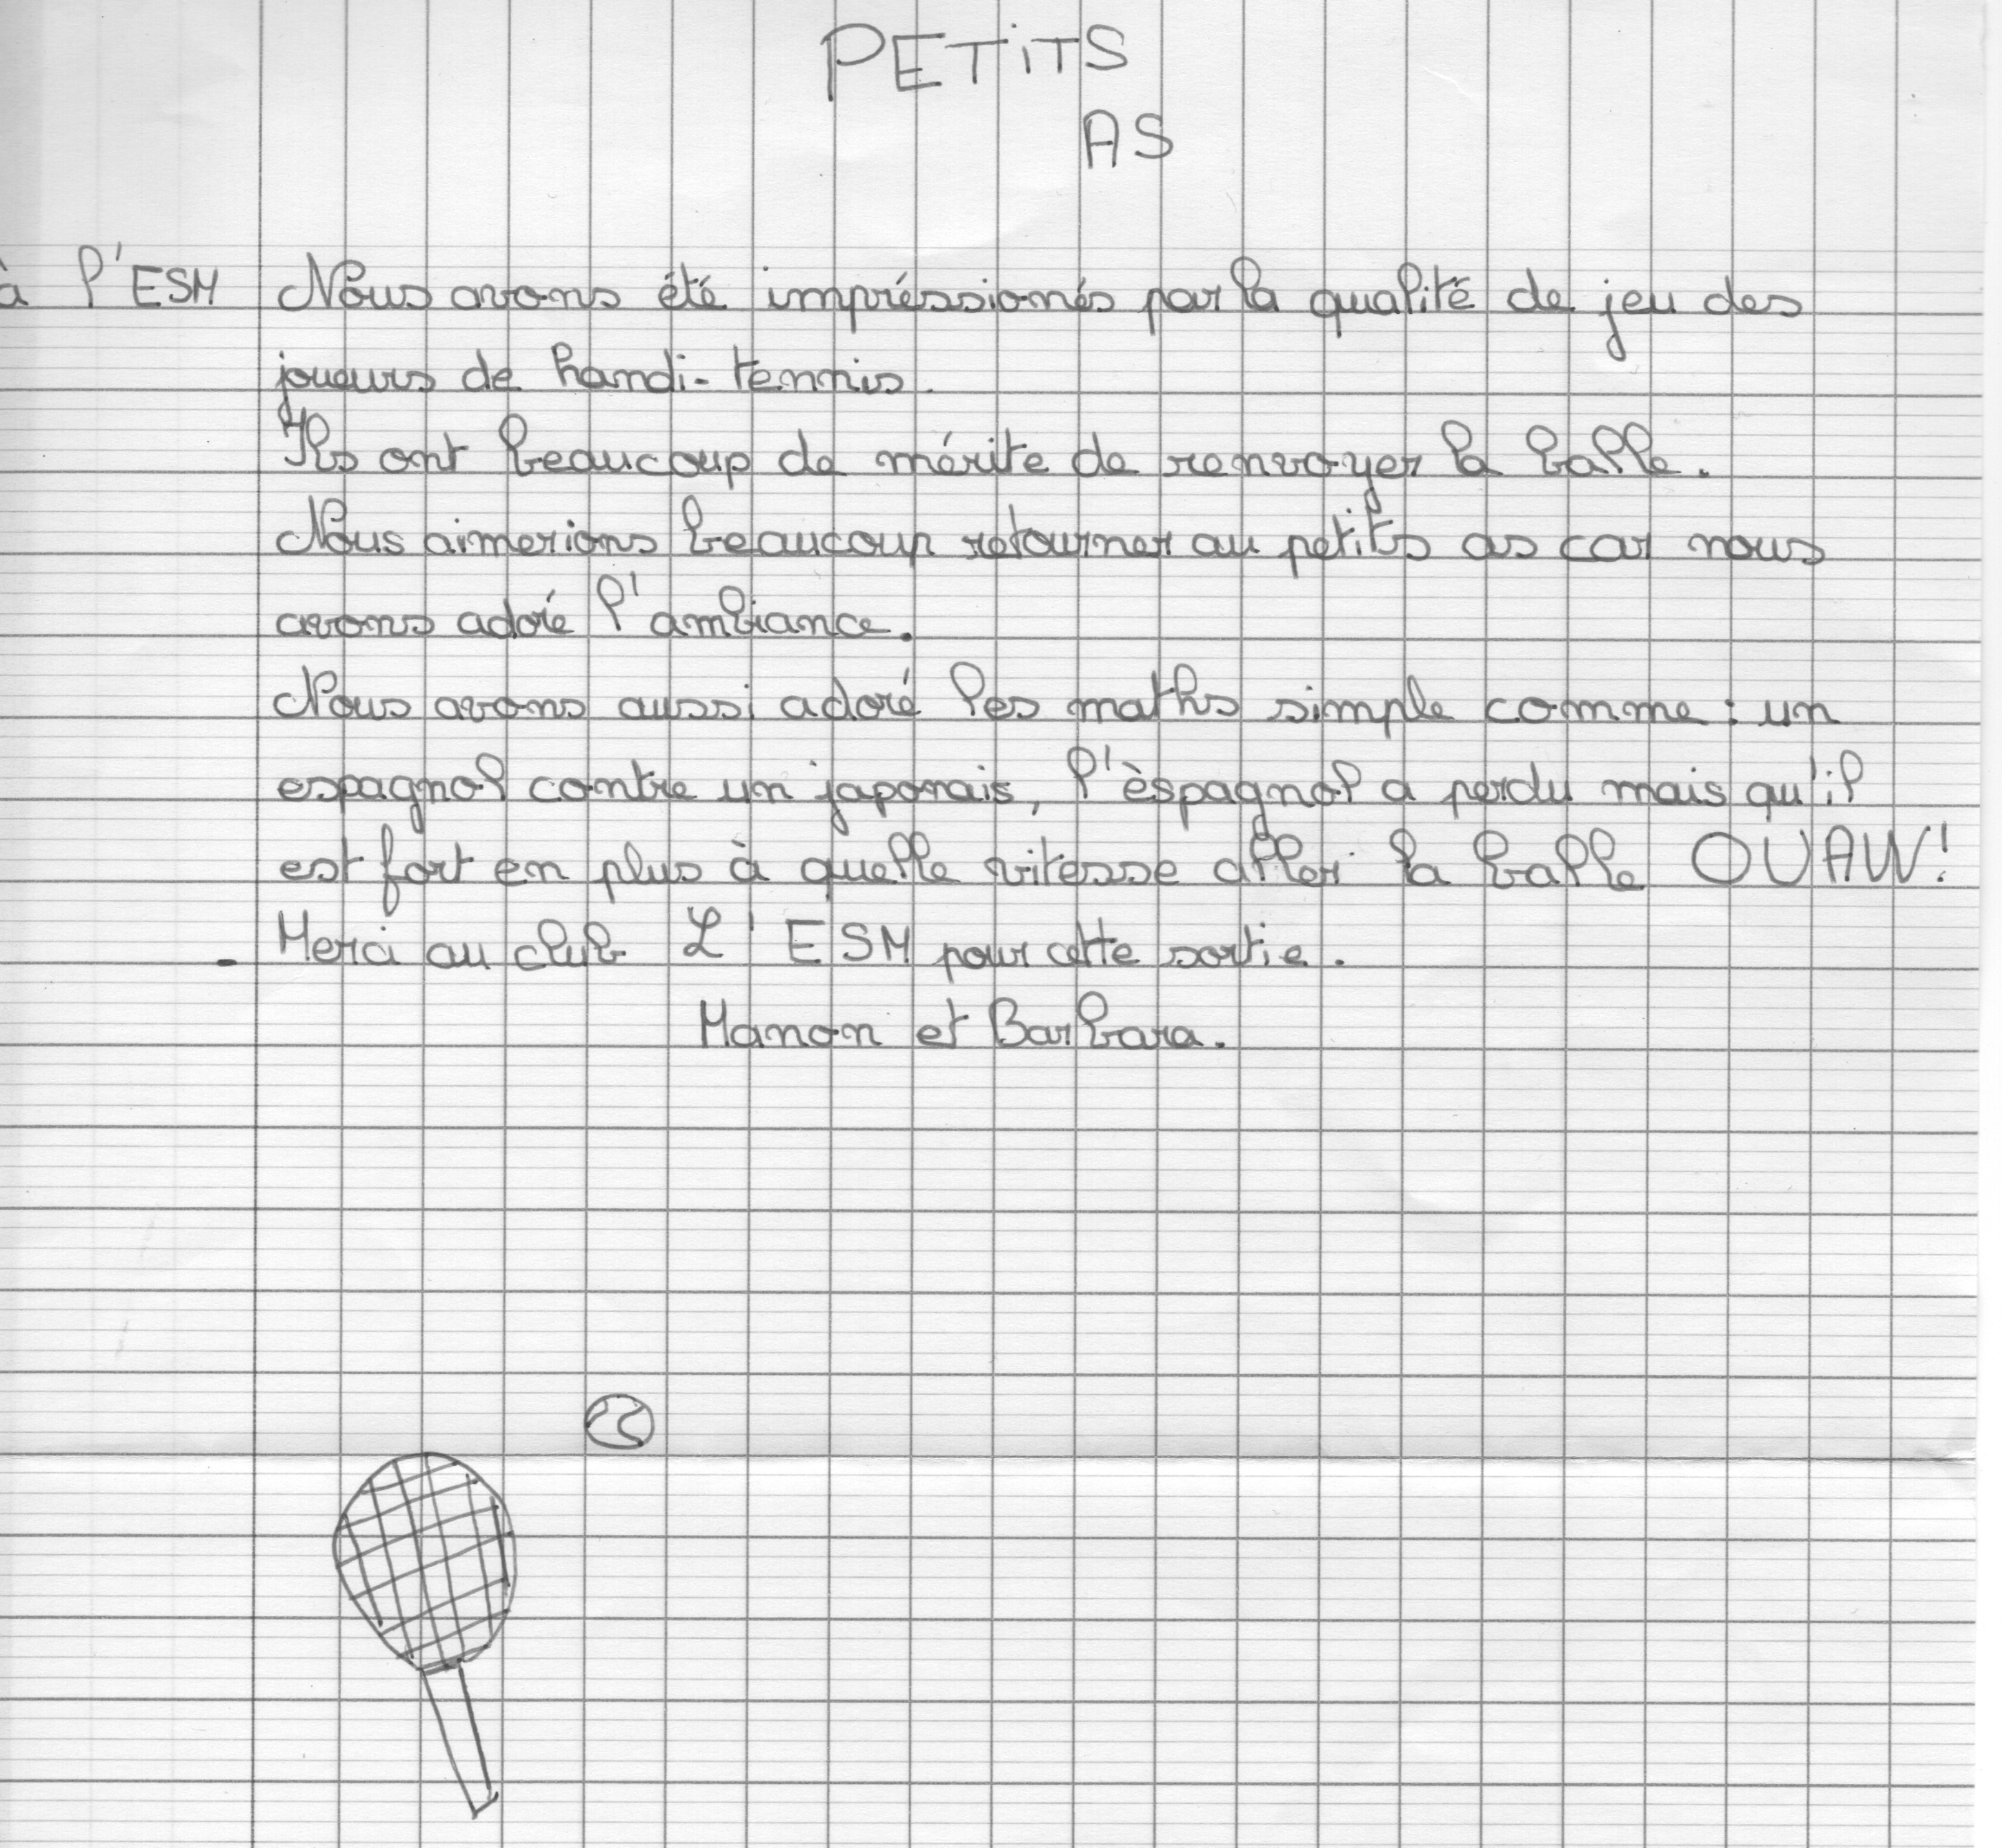 PETiTS
AS
à l'ESM Nous avons été impréssionés par la qualité de jeu des
joueurs de handi-tennis.
Ils ont beaucoup de mérite de renvoyer la balle.
Nous aimerions beaucoup retourner au petits as car nous
avons adoré l'ambiance.
Nous avons aussi adoré les maths simple comme : un
espagnol contre un japonais, l'èspagnol a perdu mais qu'il
est fort en plus à quelle vitesse aller la balle OUAW!
- Merci au club L'ESM pour cette sortie.
Manon et Barbara.